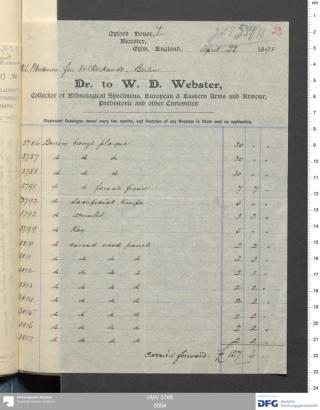 Oxford House,
Bicester,
Oxon, England. April 22 1898
Museum für Völkerkunde, Berlin
Dr. to W. D. Webster,
Collector of Ethnological Specimens, European & Eastern Arms and Armour,
Prehistoric and other Curiosities
Illustrated Catalogue issued every two months, and Sketches of any Weapon in Stock sent on application.
3786 Benin bronze plaque 30 " "
3787 do do do 30 " "
3788 do do do 30 " "
3791 do do female figure 7 7 "
3792 do sacrificial knife 5 " "
3793 do 3 3 "
3799 do Key 5 " "
3810 do carved wood panel 2 2 "
3811 do do do do 2 2 "
3812 do do do do 2 2 "
3813 do do do do 2 2 "
3814 do do do do 2 2 "
3815 do do do do 2 2 "
3816 do do do do 2 2 "
3817 do do do do 2 2 "
carried forward. £ 127 6 "
I/MV 0765
0054
DFG Deutsche
Forschungsgemeinschaft